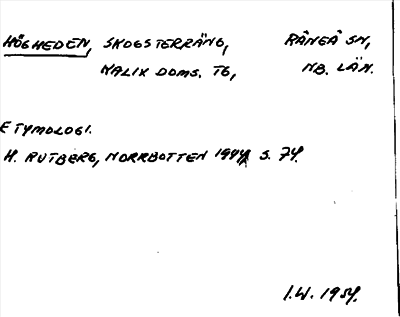 HÖGHEDEN, SKOGSTERRÄNG, RÅNEÅ SN,
KALIX DOMS. TG, NB. LÄN.
ETYMOLOGI.
H. RUTBERG, NORRBOTTEN 1944, S. 74.
I.W. 1954.